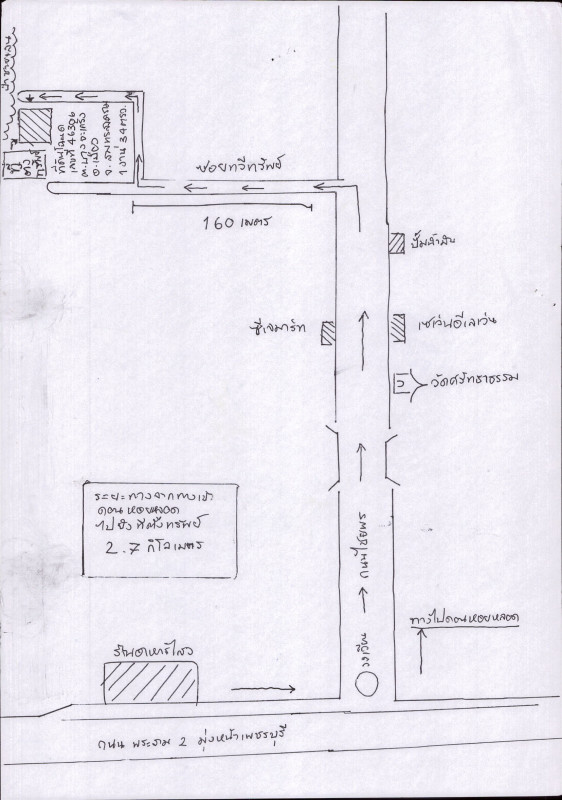 ป่าชายเลน
ที่ตั้ง
ทรัพย์
ที่ดินโฉนด
เลขที่ 46306
ต.บางจะเกร็ง
อ.เมือง
จ.สมุทรสงคราม
1 งาน 34 ตรว.
ซอยทวีทรัพย์
160 เมตร
ปั๊มน้ำมัน
ซีเจมาร์ท
เซเว่นอีเลเว่น
วัดศรัทธาธรรม
ระยะทางจากทางเข้า
ดอนหอยหลอด
ไปยัง ที่ตั้งทรัพย์
2.7 กิโลเมตร
ถนนไชยพร
ทางไปดอนหอยหลอด
วงเวียน
ถนน พระราม 2 มุ่งหน้าเพชรบุรี